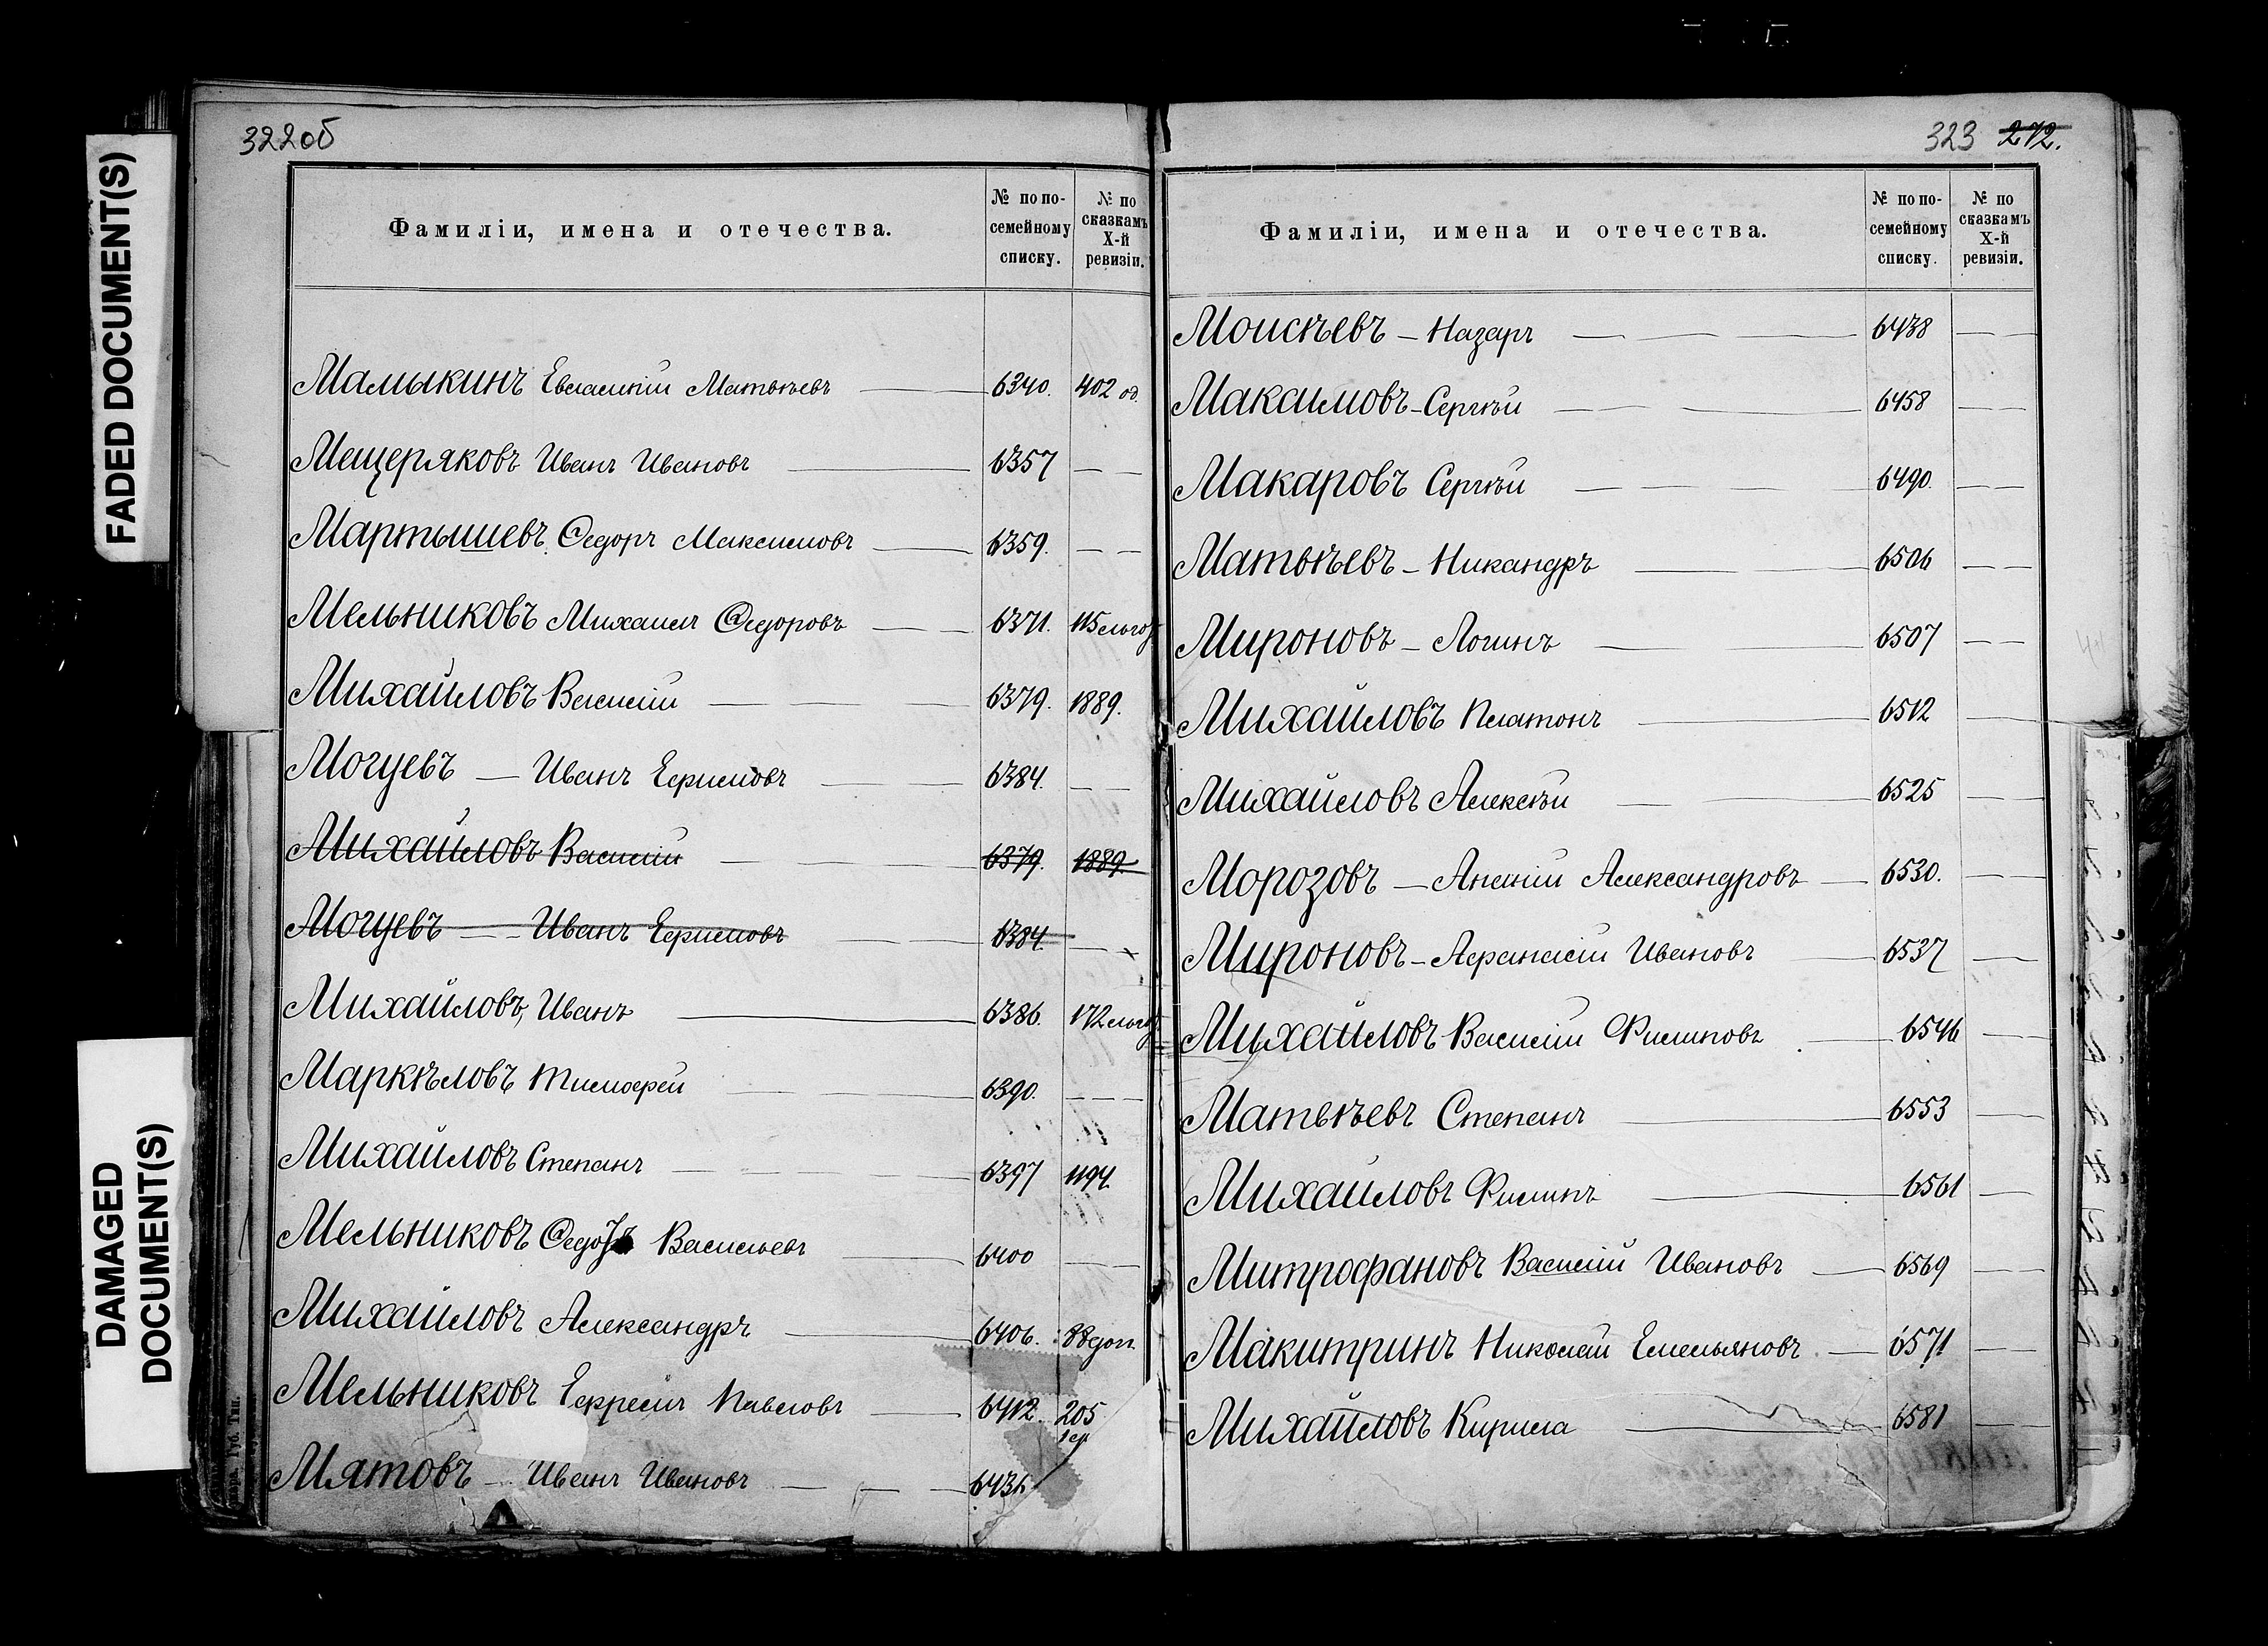 FADED DOCUMENT(S)
DAMAGED
DOCUMENT(S)
322об
Фамиліи, имена и отечества.
№ по по-
семейному
списку.
№ по
сказкамъ
X-й
ревизіи.
Мамыкинъ Евлампій Матвѣевъ — 6340. 402 об.
Мещеряковъ Иванъ Ивановъ — 6357 — —
Мартышевъ Ѳедоръ Максимовъ — 6359. — —
Мельниковъ Михаилъ Ѳедоровъ — — 6371. 115
Михайловъ Василій — — — 6379. 1889.
Могуевъ — Иванъ Ефимовъ — — 6384. — —
Михайловъ Василій — — 6379. 1889.
Могуевъ — Иванъ Ефимовъ — — 6384. — —
Михайловъ, Иванъ — 6386. 172
Маркѣловъ Тимофей — — 6390. — — —
Михайловъ Степанъ — — — 6397 1194.
Мельниковъ Васильевъ — 6400 — —
Михайловъ Александръ — 6406. 88 доп.
Мельниковъ Ефремъ Павловъ — 6412. 205
Мятовъ — Иванъ Ивановъ — — — 6436
323 272.
Фамиліи, имена и отечества.
№ по по-
семейному
списку.
№ по
сказкамъ
X-й
ревизіи.
Моисѣевъ — Назаръ — — — 6438 — —
Максимовъ — Сергѣй — — — 6458 — —
Макаровъ Сергѣй — — — 6490. — —
Матвѣевъ — Никандръ — — 6506 — —
Мироновъ — Логинъ — — 6507 — —
Михайловъ Платонъ — — 6512 —
Михайловъ Алексѣй — — 6525 — —
Морозовъ — Ананій Александровъ — 6530. — —
Мироновъ — Афанасій Ивановъ — 6537 — —
Михайловъ Василій Филиповъ — 6546 —
Матвѣевъ Степанъ — 6553 —
Михайловъ Филипъ — 6561 —
Митрофановъ Василій Ивановъ — 6569 — —
Макитринъ Николай Емельяновъ — 6571 —
Михайловъ Кирила — 6581 —